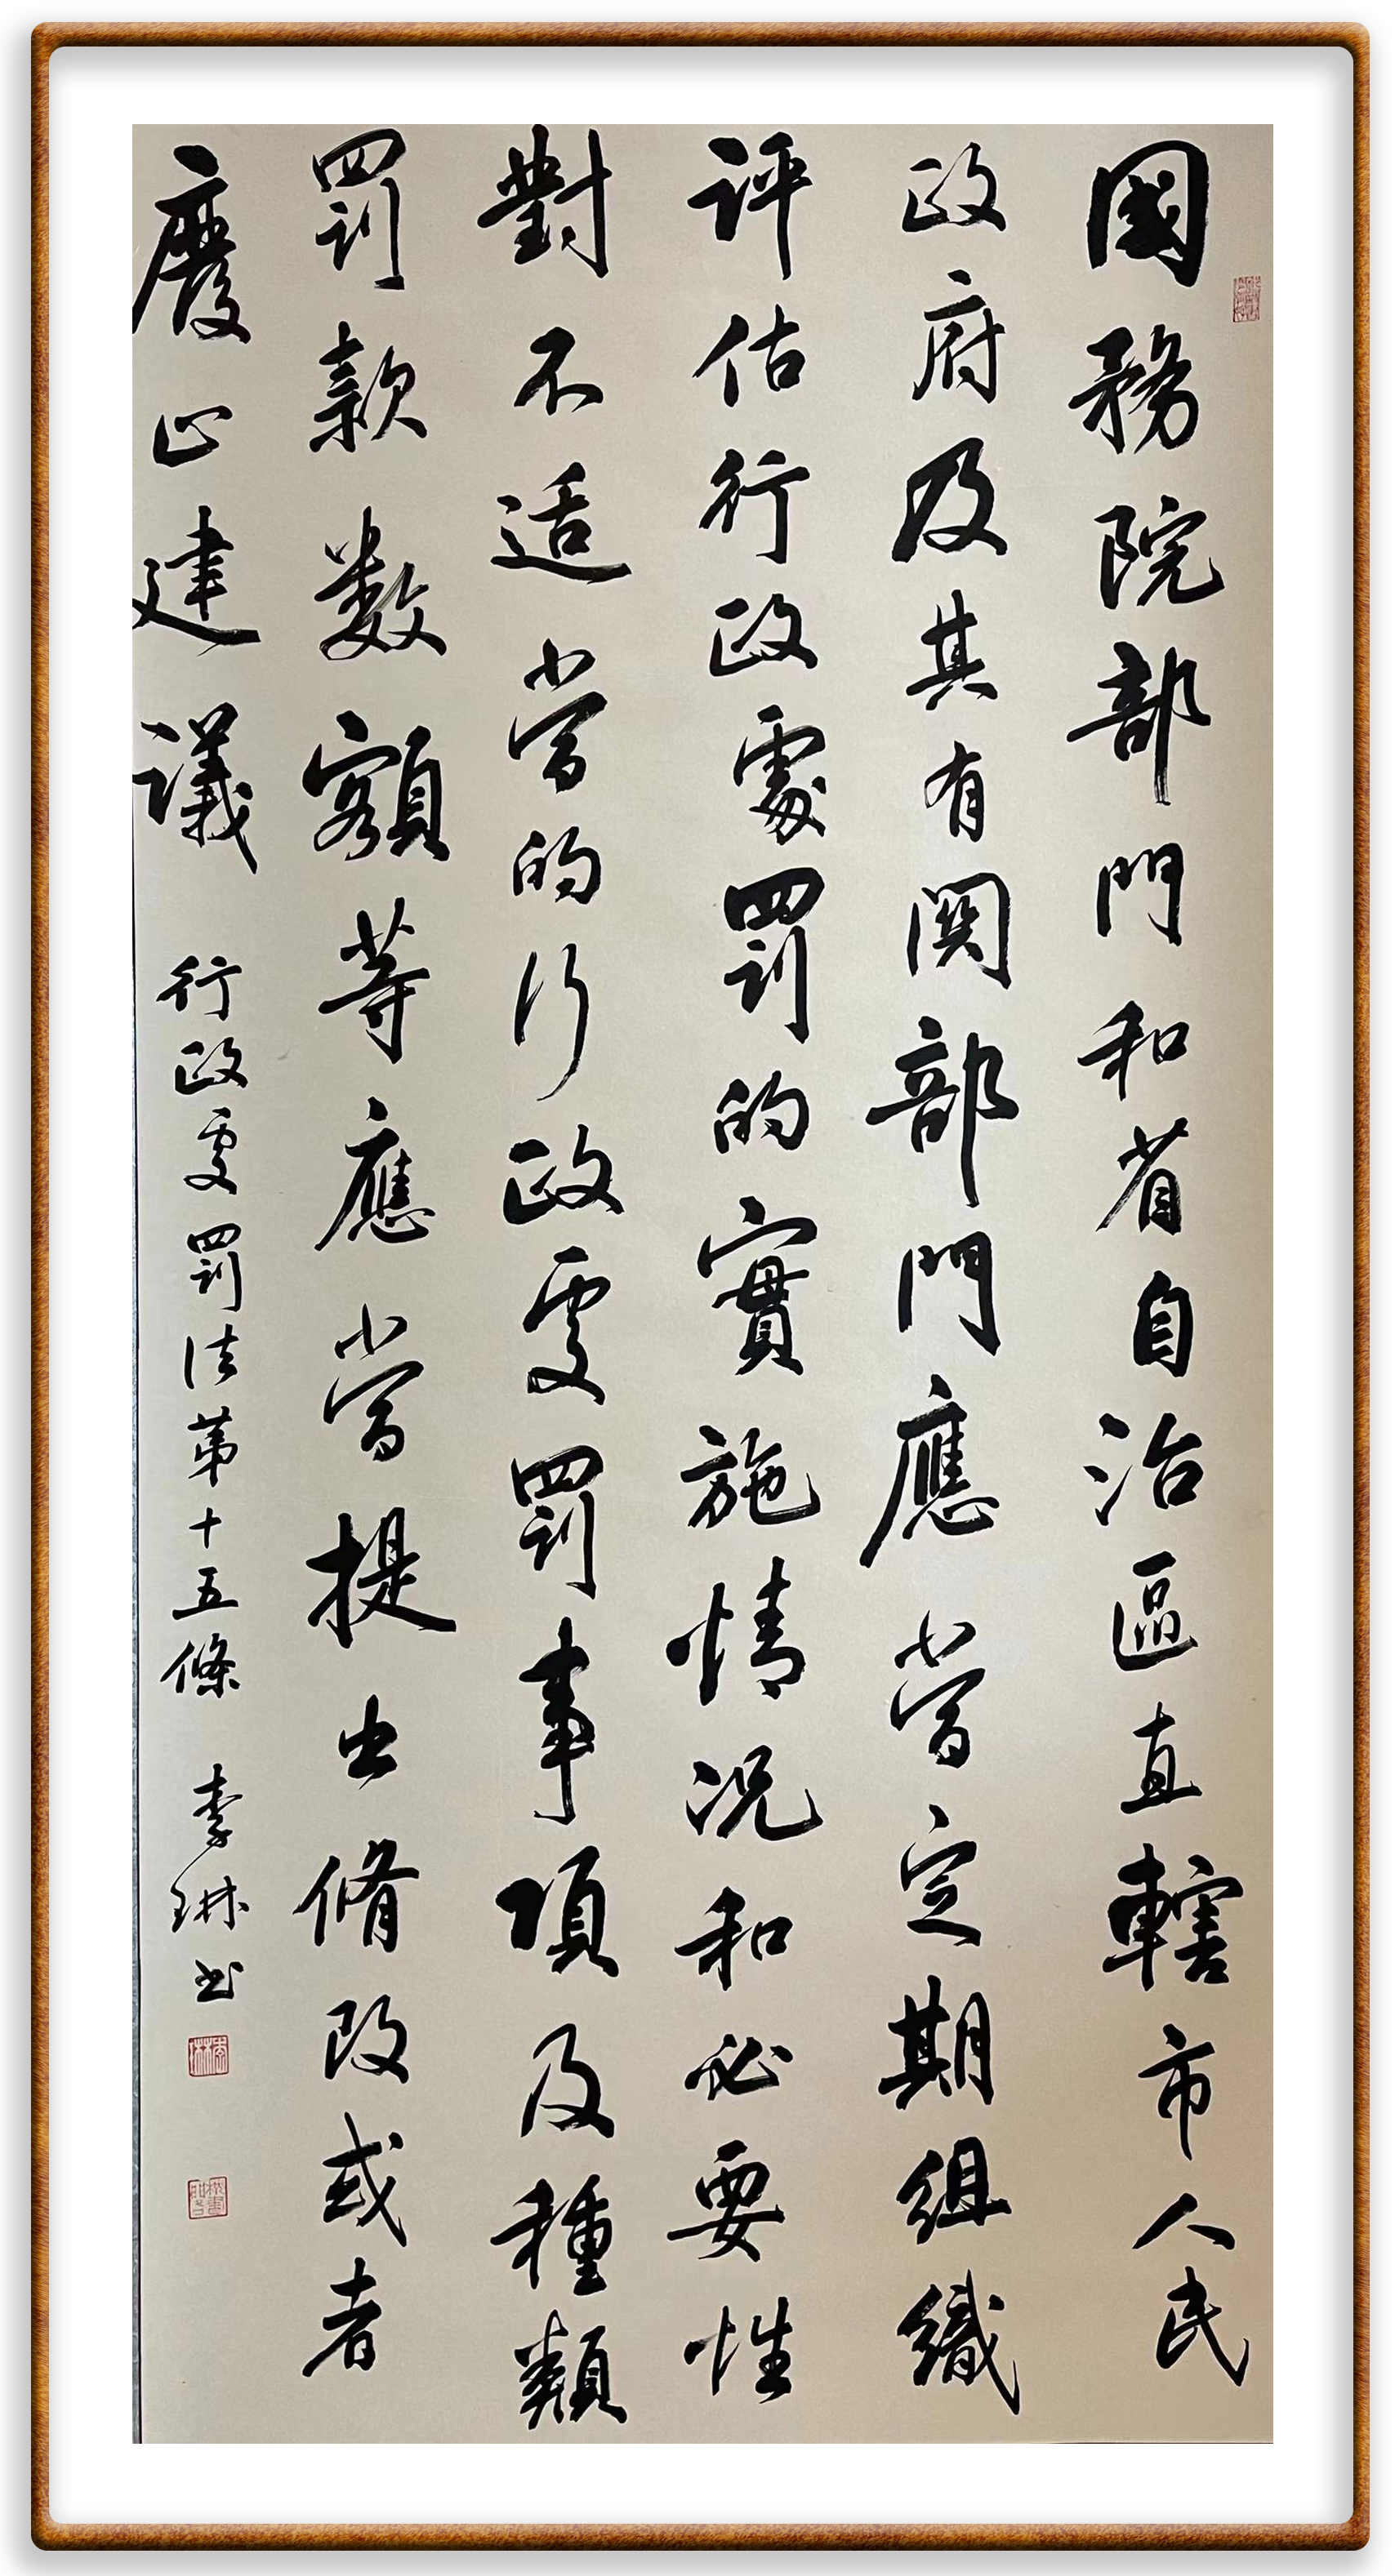 國務院部門和省自治區直轄市人民
政府及其有関部門應當定期組織
评估行政處罰的實施情况和必要性
對不适當的行政處罰事項及種類
罰款数額等應當提出脩改或者
廢止建議
行政處罰法第十五條 李琳书